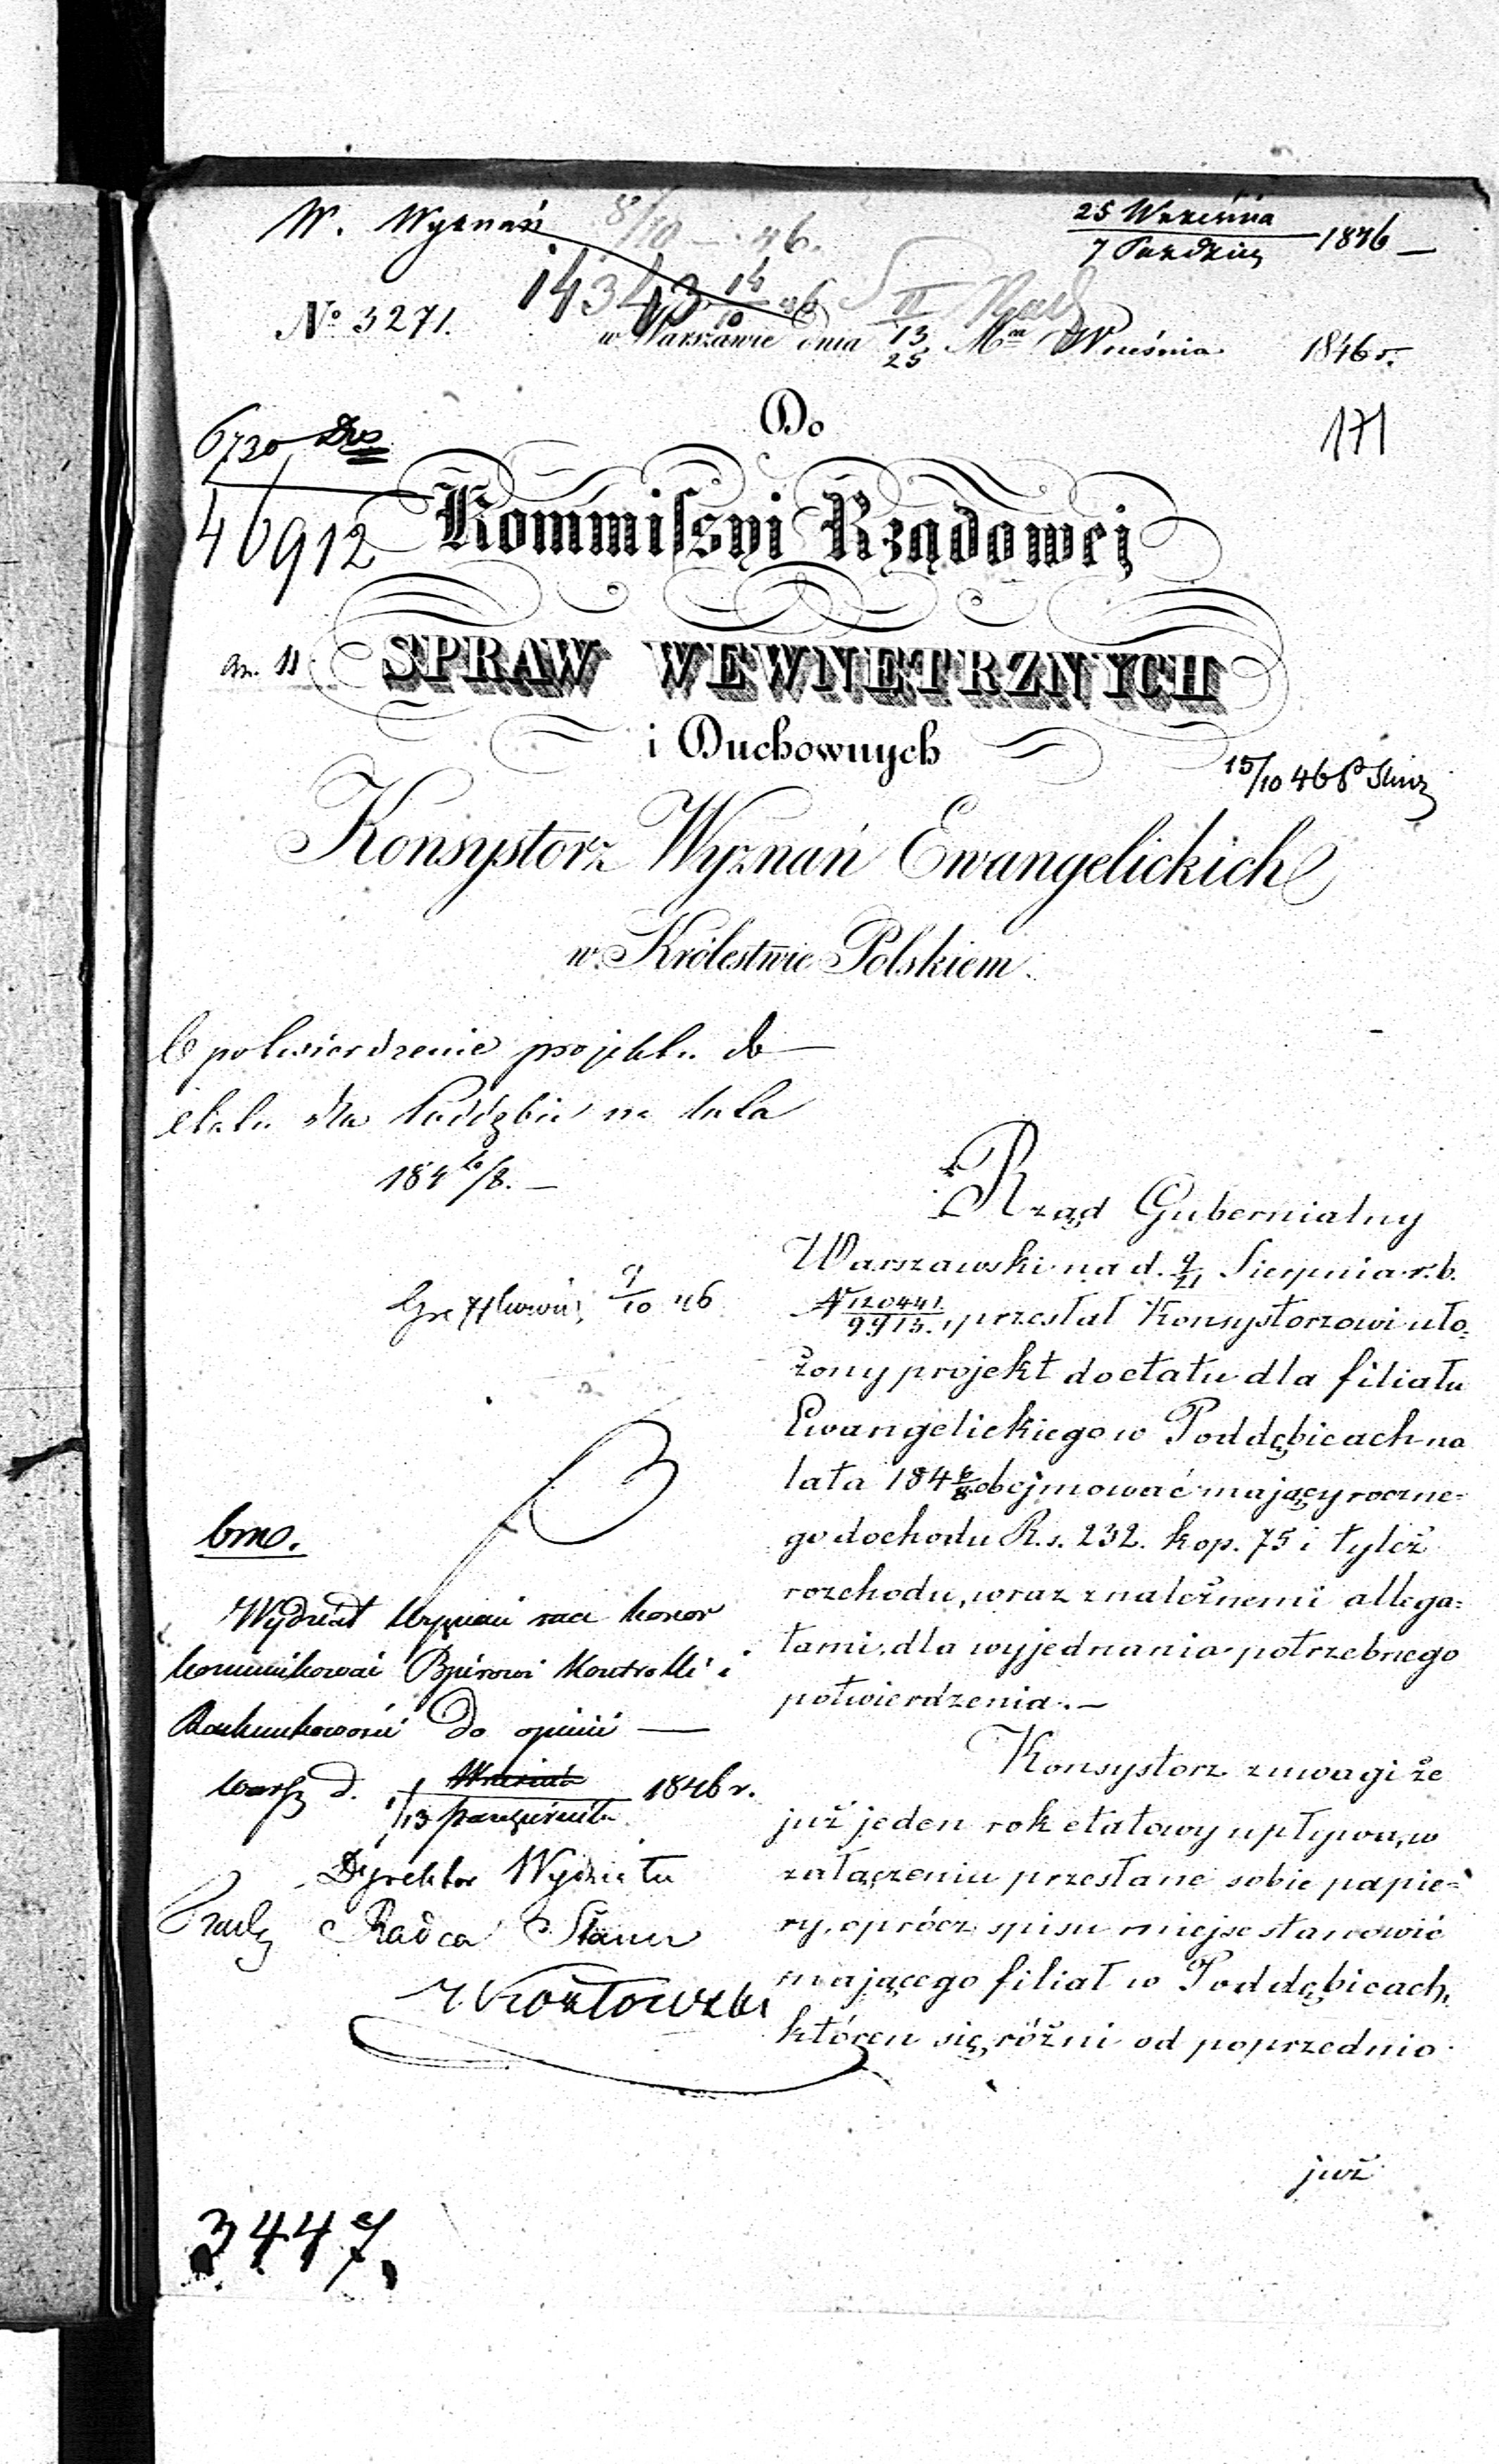 W. Wyznań 8/10 – 46.
25 Września
7 Paździer 1846 –
14343 14/10 46
No 3271.
w Warszawie dnia 13/25 Mca Września 1846 r.
171
6730
46912
Do
Kommifsyi Rządowej
an. 11
SPRAW WEWNĘTRZNYCH
i Duchownych
15/10 46
Konsystorz Wyznań Ewangelickich
w Królestwie Polskiem.
O potwierdzenie projektu do
etatu dla Poddębic na lata
184 6/8. –
9/10 46
Rząd Gubernialny
Warszawski na d. 9/21 Sierpnia r. b.
N 120441/9915. przesłał Konsystorzowi uło=
żony projekt do etatu dla filiału
Ewangelickiego w Poddębicach na
lata 184 6/8 obejmować mający roczne=
go dochodu R.s. 232. kop. 75 i tyleż
rozchodu, wraz z należnemi allega=
tami, dla wyjednania potrzebnego
potwierdzenia. –
Konsystorz z uwagi że
już jeden rok etatowy upływa, w
załączeniu przesłane sobie papie=
ry, oprócz spisu miejsc stanowić
mającego filiał w Poddębicach,
któren się różni od poprzednio
już
bmo.
Wydział Wyznań ma honor
kommunikować Bjurowi Kontrolli i
Rachunkowości do opinii —
Warsz d. 1/13 Października 1846 r.
Dyrektor Wydziału
Radca Stanu
Kozłowski
3447